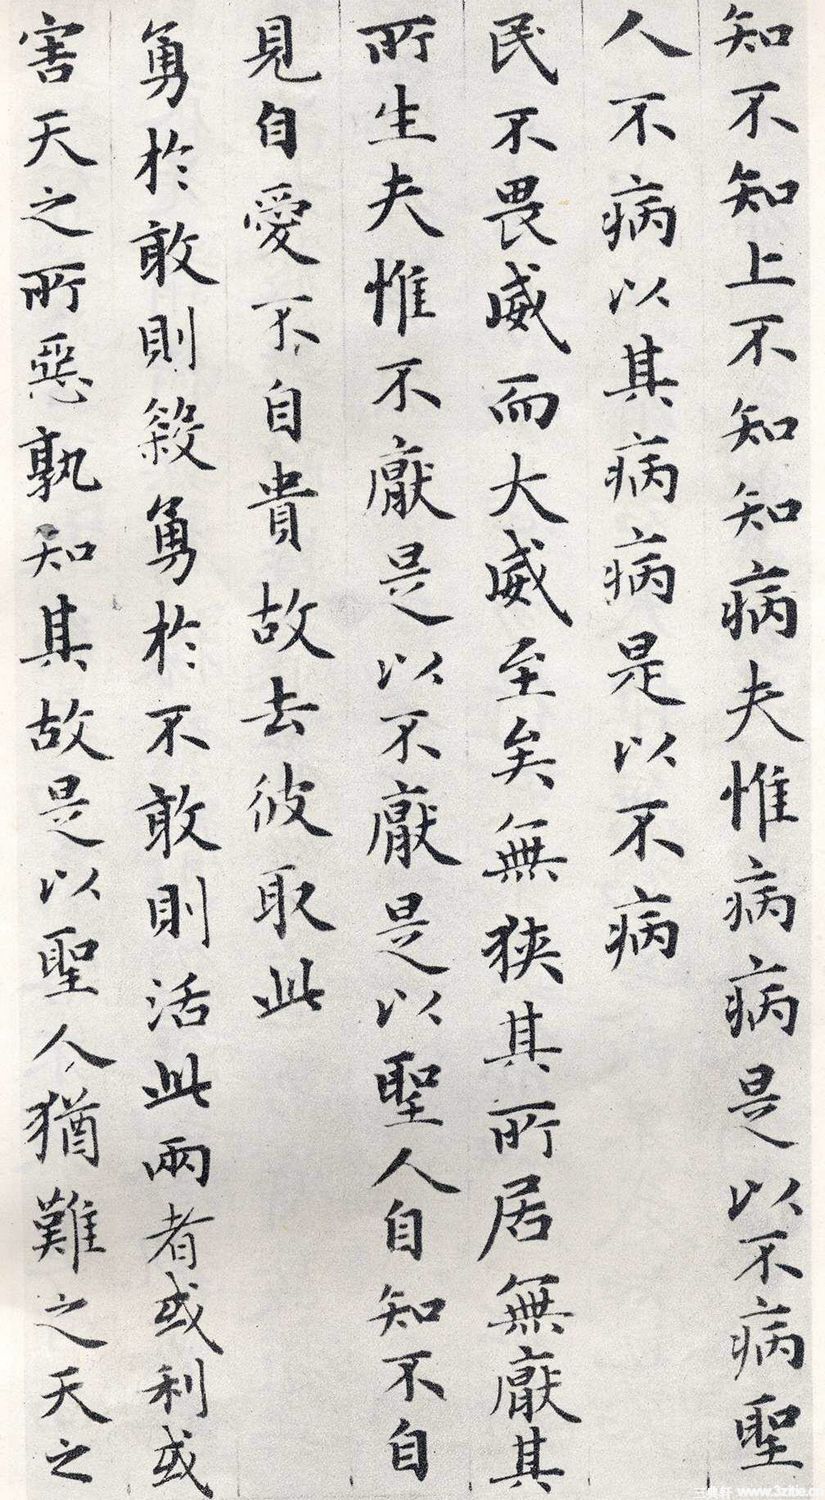 知不知上不知知病夫惟病病是以不病聖
人不病以其病病是以不病
民不畏威而大威至矣無狹其所居無厭其
所生夫惟不厭是以不厭是以聖人自知不自
見自愛不自貴故去彼取此
勇於敢則殺勇於不敢則活此兩者或利或
害天之所惡孰知其故是以聖人猶難之天之
www.3zitie.cn